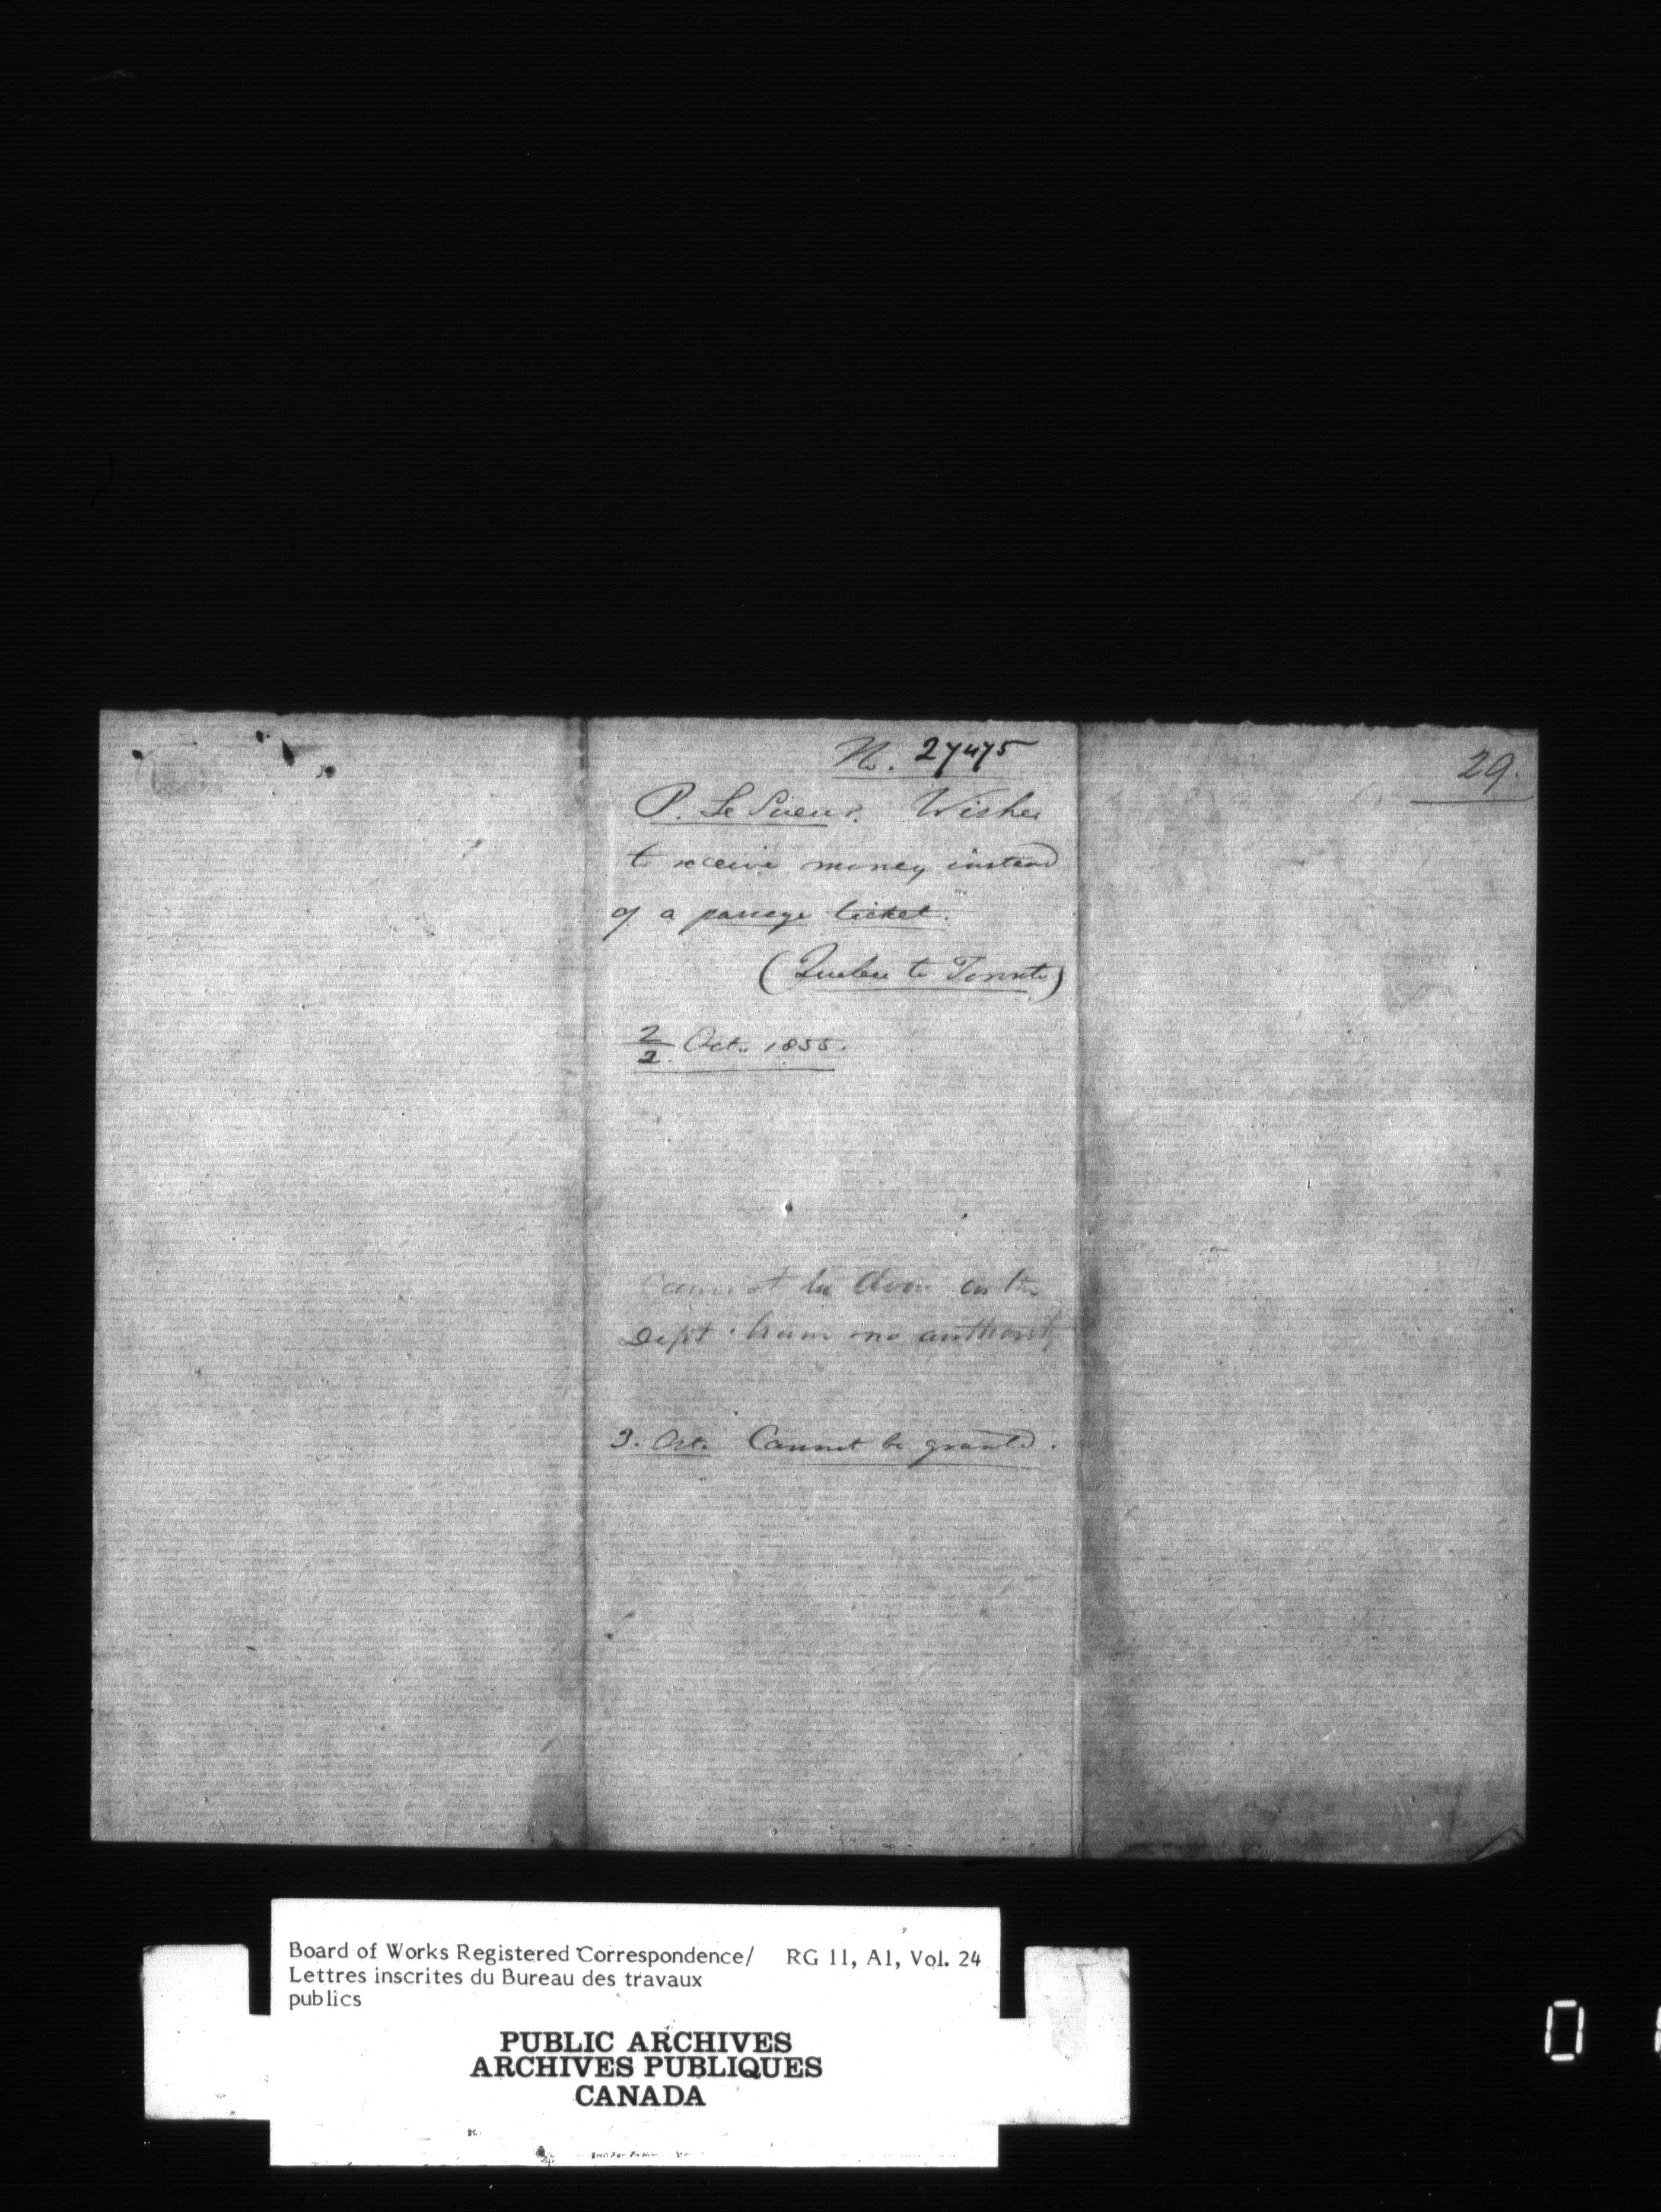 No. 27475
29.
P. Le Sueur. Wishes
to receive money instead
of a passage ticket.
(Quebec to Toronto)
2/2. Oct. 1855.
Cannot be done as the
Dept. have no authority
3. Oct. Cannot be granted.
Board of Works Registered Correspondence/ RG 11, A1, Vol. 24
Lettres inscrites du Bureau des travaux
publics
PUBLIC ARCHIVES
ARCHIVES PUBLIQUES
CANADA
0